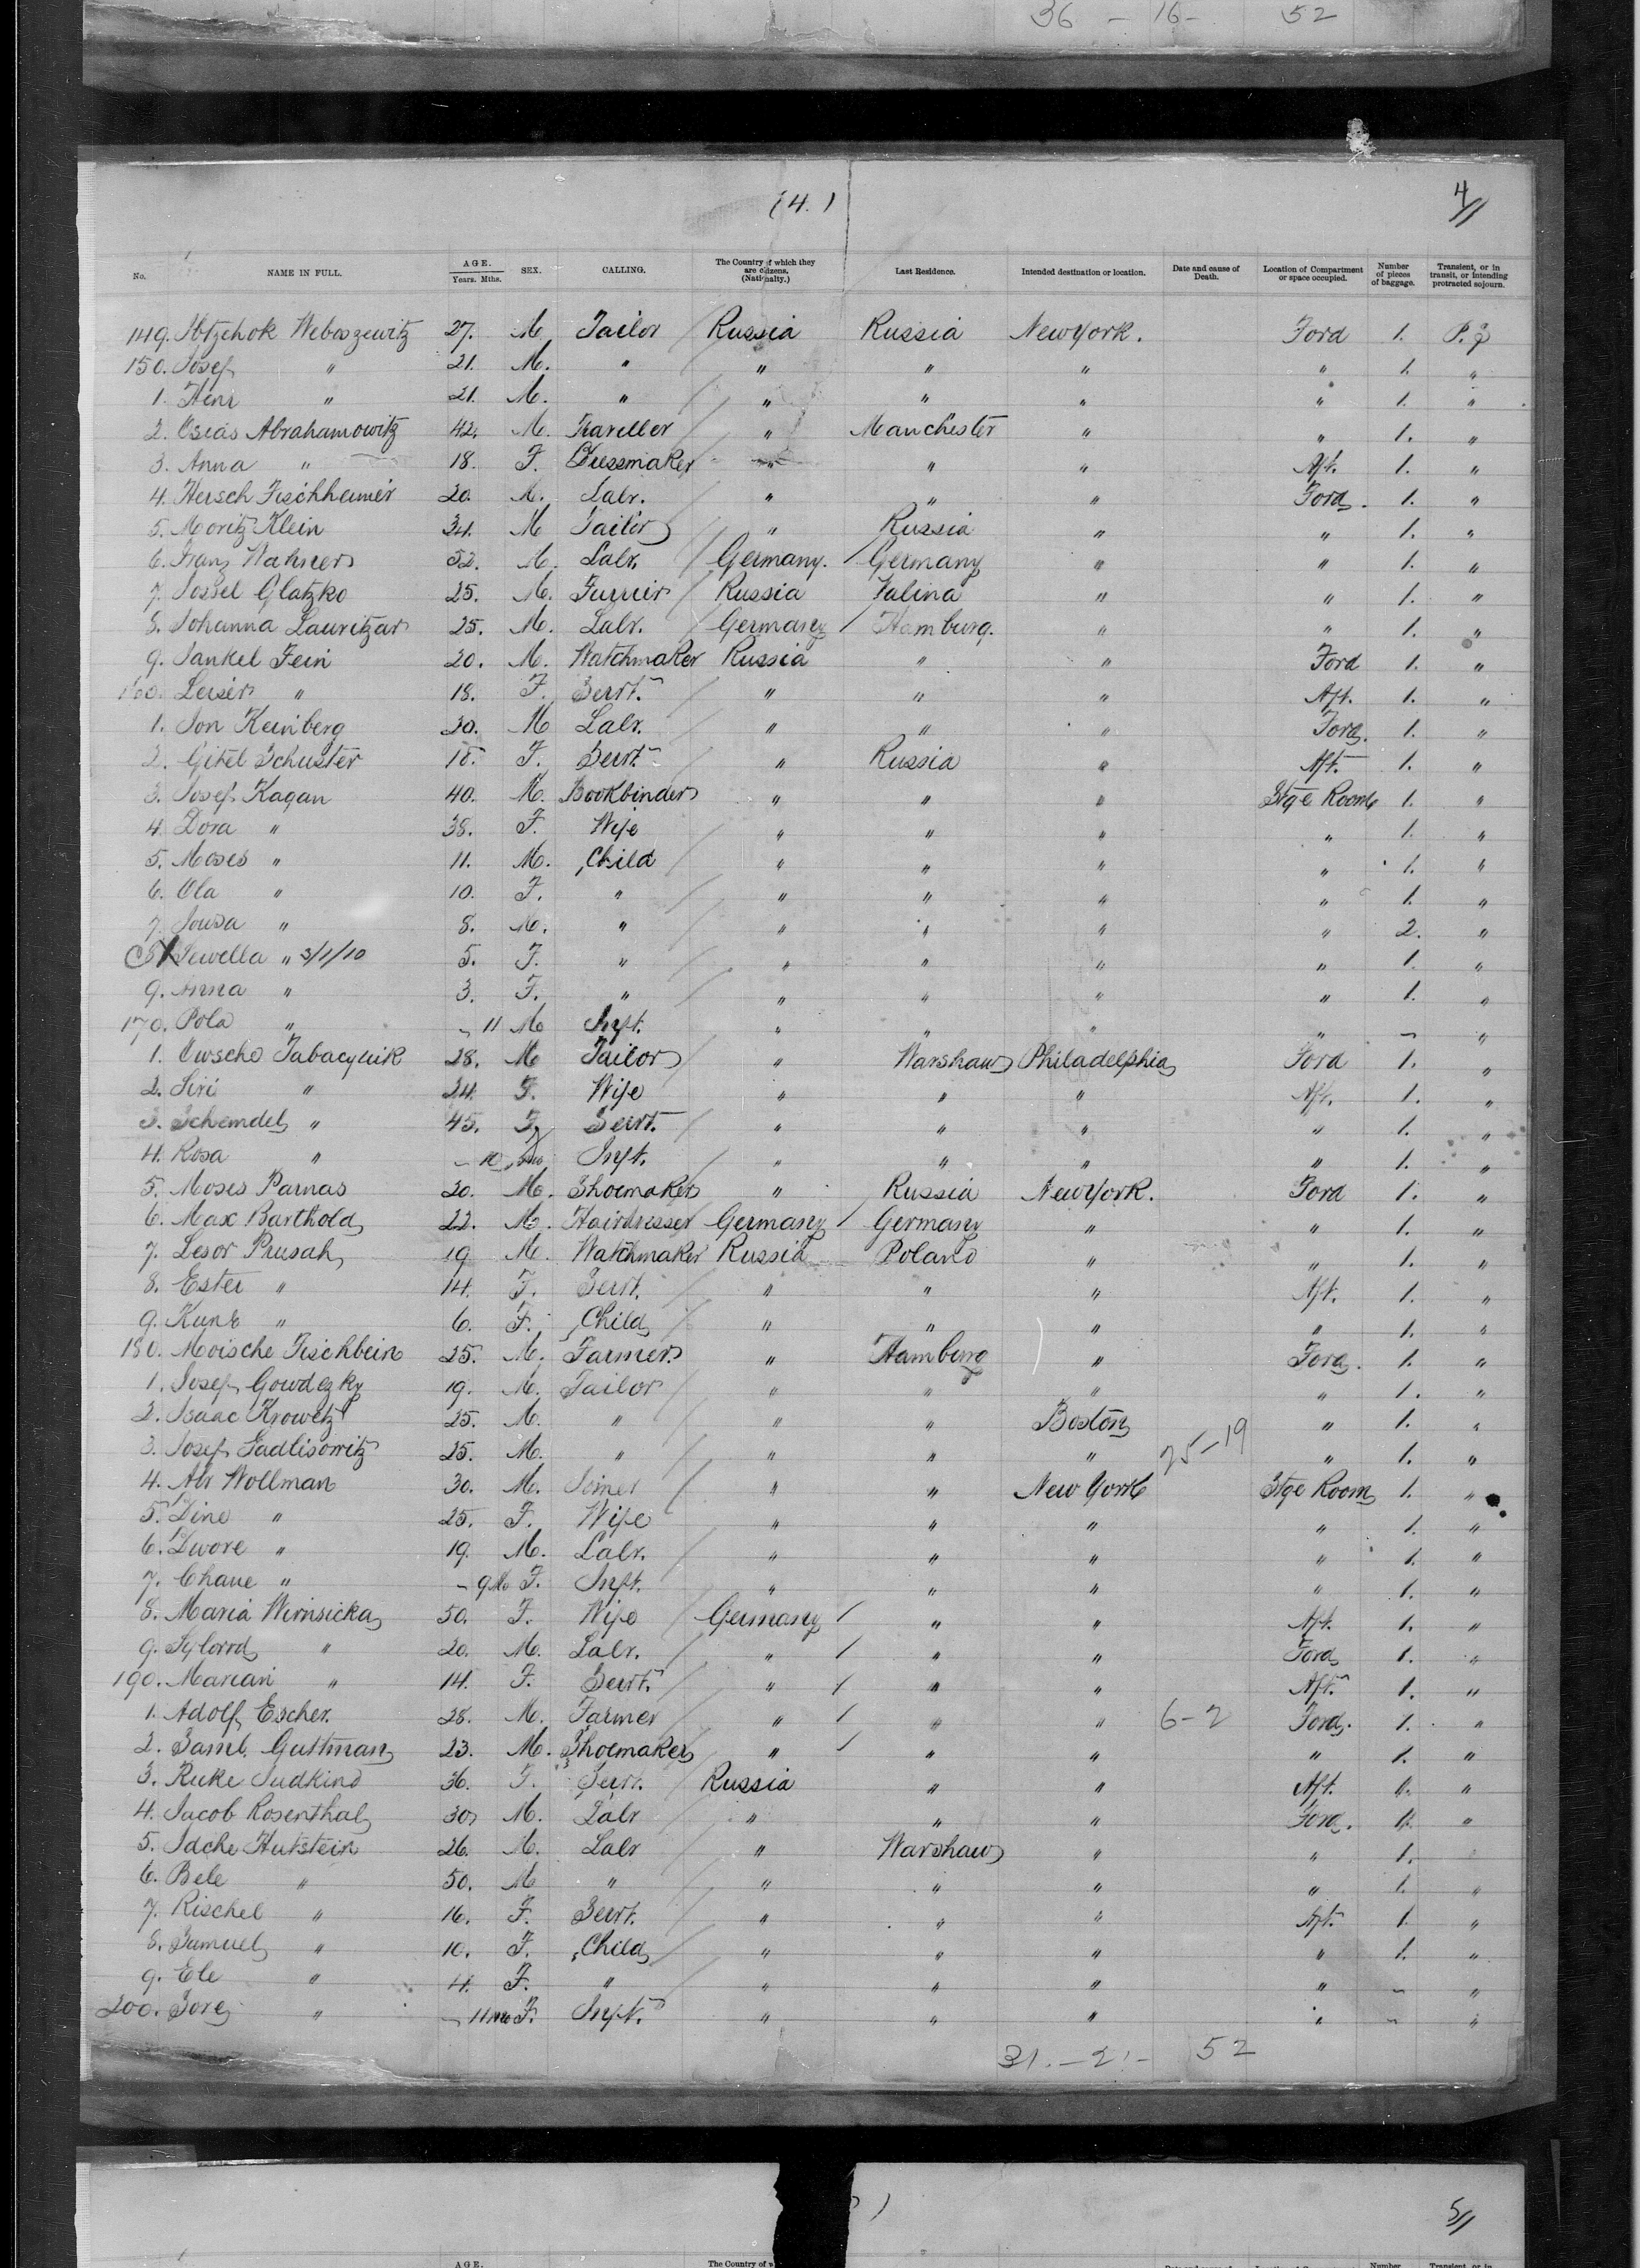 36 - 16 - 52
(4.) 4//
No. NAME IN FULL. AGE. Years. Mths. SEX. CALLING. The Country of which they are citizens, (Nationality.) Last Residence. Intended destination or location. Date and cause of Death. Location of Compartment or space occupied. Number of pieces of baggage. Transient, or in transit, or intending protracted sojourn.
149. Weboszewitz 27. M Tailor Russia Russia New York. Ford 1. P.S
150. Josef " 21. M. " " " " " 1. "
1. " 21. M. " " " " " 1. "
2. Osias Abrahamowitz 42. M. Traveller " Manchester " " 1. "
3. Anna " 18. F. Dressmaker " " " Aft. 1. "
4. Hersch Fischheimer 20. M. Labr. " " " Ford. 1. "
5. Moritz Klein 34. M Tailor " Russia " " 1. "
6. Franz Wahner 52. M. Labr. Germany. Germany " " 1. "
7. Jossel Glatzko 25. M. Furrier Russia Falina " " 1. "
8. Johanna Lauritzar 25. M. Labr. Germany Hamburg. " " 1. "
9. Jankel Fein 20. M. Watchmaker Russia " " Ford 1. "
160. Leiser " 18. F. Servt. " " " Aft. 1. "
1. Jon Keinberg 30. M Labr. " " " Ford. 1. "
2. Gitel Schuster 18. F. Servt. " Russia " Aft. 1. "
3. Josef Kagan 40. M. Bookbinder " " " Stge Room 1. "
4. Dora " 38. F. Wife " " " " 1. "
5. Moses " 11. M. Child " " " " 1. "
6. Ola " 10. F. " " " " " 1. "
7. Jousa " 8. M. " " " " " 2. "
8 Sewella " 3/1/10 5. F. " " " " " 1. "
9. Anna " 3. F. " " " " " 1. "
170. Pola " - 11 M Inft. " " " " - "
1. Owscho Tabacynik 28. M Tailor " Warshaw Philadelphia Ford 1. "
2. Siri " 24. F. Wife " " " Aft. 1. "
3. Schemdel " 45. F Servt. " " " " 1. "
4. Rosa " - 10 mo Inft. " " " " 1. "
5. Moses Parnas 20. M. Shoemaker " Russia New York. Ford 1. "
6. Max Barthold 22. M. Hairdresser Germany Germany " " 1. "
7. Lesor Prusak 19 M. Watchmaker Russia Poland " " 1. "
8. Ester " 14. F. Servt. " " " Aft. 1. "
9. Kune " 6. F. Child " " " " 1. "
180. Moische Fischbein 25. M. Farmer " Hamburg " Ford. 1. "
1. Josef Gowdczky 19. M. Tailor " " " " 1. "
2. Isaac Krowetz 25. M. " " " Boston " 1. "
3. Josef Gadlisowitz 25. M. " " " " 25-19 " 1. "
4. Abr Wollman 30. M. Joiner " " New York Stge Room 1. "
5. Dine " 25. F. Wife " " " " 1. "
6. Dwore " 19. M. Labr. " " " " 1. "
7. Chane " - 9 Mo F. Inft. " " " " 1. "
8. Maria Wirnsicka 50. F. Wife Germany " " Aft. 1. "
9. " 20. M. Labr. " " " Ford 1. "
190. Marian " 14. F. Servt. " " " Aft. 1. "
1. Adolf Escher. 28. M. Farmer " " " 6-2 Ford. 1. "
2. Saml. Guttman 23. M. Shoemaker " " " " 1. "
3. Ruke Sudkind 36. F. Servt. Russia " " Aft. 1. "
4. Jacob Rosenthal 30 M. Labr " " " Ford. 1. "
5. Idcke Hutstein 26. M. Labr " Warshaw " " 1.
6. Bele " 50. M " " " " " 1. "
7. Rischel " 16. F. Servt. " " " Aft. 1. "
8. Samuel " 10. F. Child " " " " 1. "
9. Ele " 4. F. " " " " " - "
200. Sore " - 11 mo F. Inft. " " " " - "
31. - 21 - 52
) 5//
AGE. The Country of Number Transient, or in